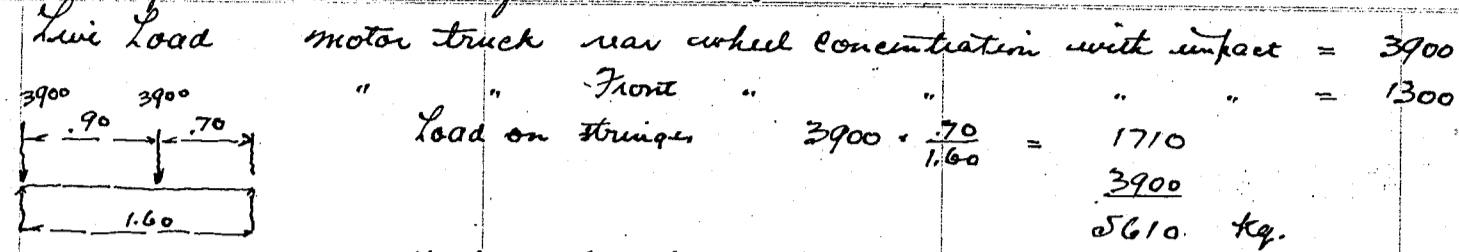 Live Load motor truck rear wheel concentration with impact = 3900
" " Front " " " " = 1300
3900 3900
.90 .70
Load on stringer 3900 · .70/1.60 = 1710
3900
1.60
5610. kg.